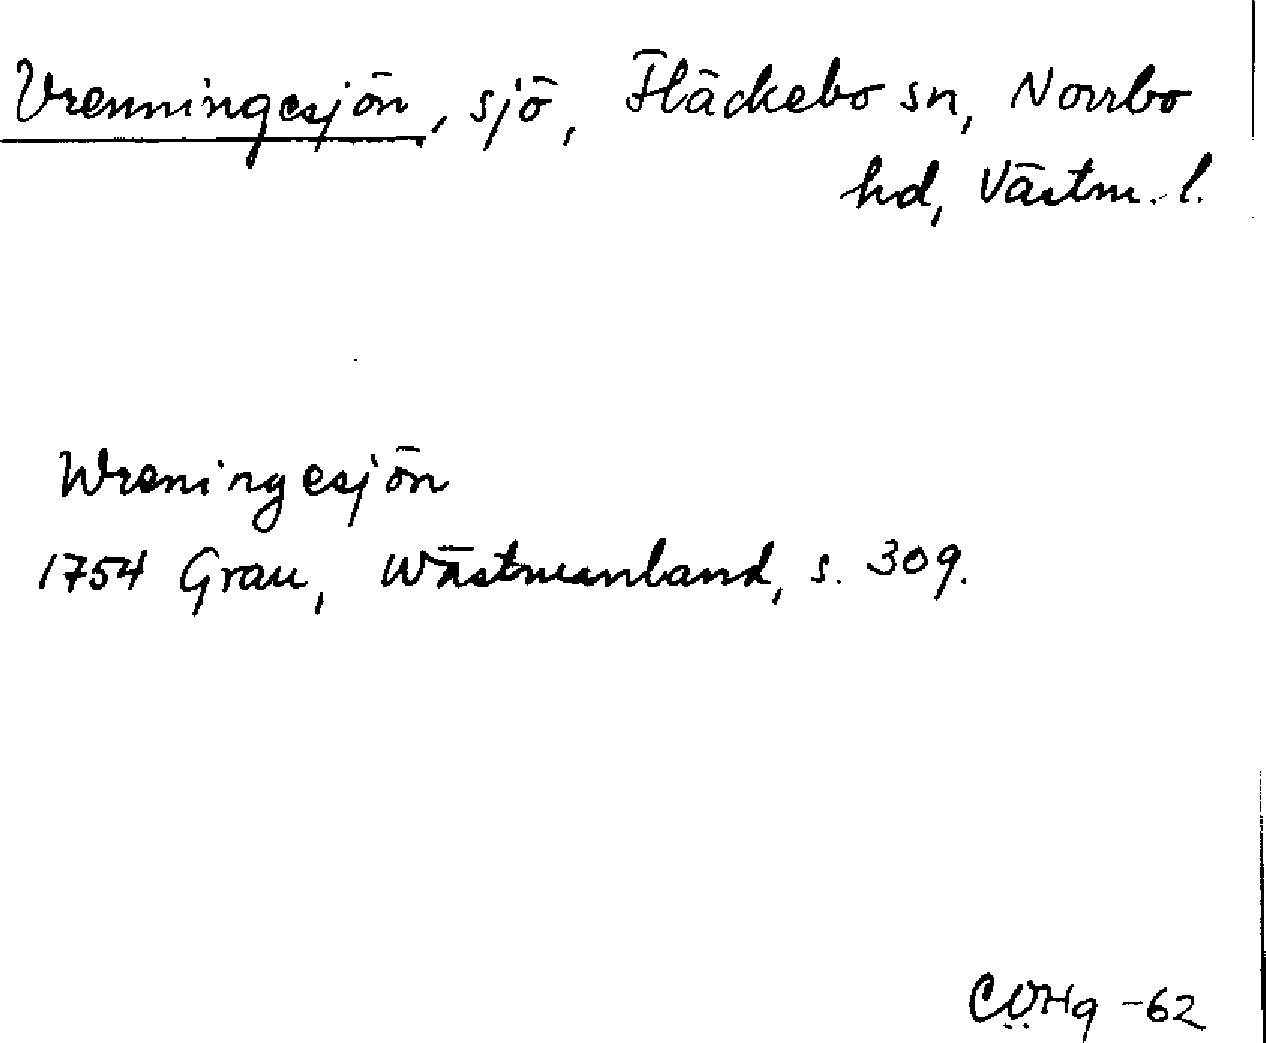 Vrenningesjön, sjö, Fläckebo sn, Norrbo
hd, Västm. l.
Wreningesjön
1754 Grau, Wästmanland, s. 309.
-62